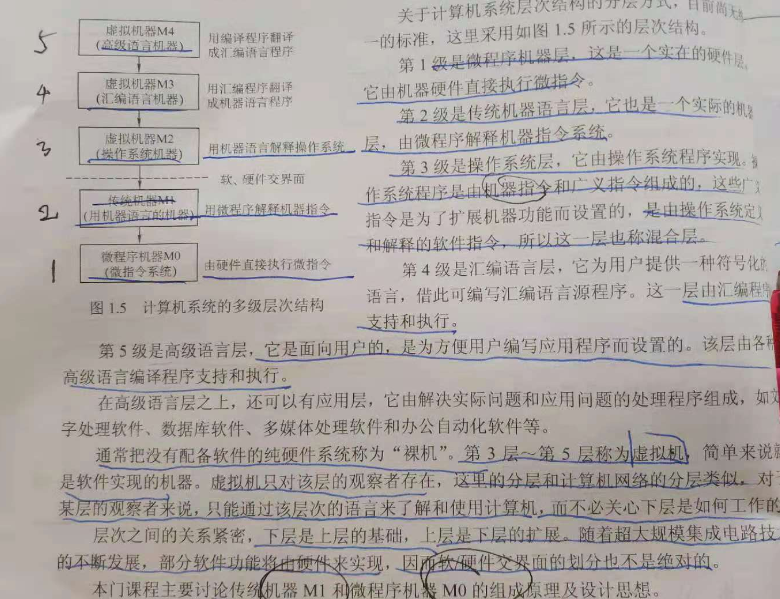 关于计算机系统层次结构的分层方式，目前尚无
一的标准，这里采用如图 1.5 所示的层次结构。
第 1 级是微程序机器层，这是一个实在的硬件层，
它由机器硬件直接执行微指令。
第 2 级是传统机器语言层，它也是一个实际的机器
层，由微程序解释机器指令系统。
第 3 级是操作系统层，它由操作系统程序实现。
作系统程序是由机器指令和广义指令组成的，这些广义
指令是为了扩展机器功能而设置的，是由操作系统定义
和解释的软件指令，所以这一层也称混合层。
第 4 级是汇编语言层，它为用户提供一种符号化的
语言，借此可编写汇编语言源程序。这一层由汇编程序
支持和执行。
5
虚拟机器M4
(高级语言机器)
用编译程序翻译
成汇编语言程序
4
虚拟机器M3
(汇编语言机器)
用汇编程序翻译
成机器语言程序
3
虚拟机器M2
(操作系统机器)
用机器语言解释操作系统
软、硬件交界面
2
传统机器M1
(用机器语言的机器)
用微程序解释机器指令
1
微程序机器M0
(微指令系统)
由硬件直接执行微指令
图 1.5 计算机系统的多级层次结构
第 5 级是高级语言层，它是面向用户的，是为方便用户编写应用程序而设置的。该层由各种
高级语言编译程序支持和执行。
在高级语言层之上，还可以有应用层，它由解决实际问题和应用问题的处理程序组成，如文
字处理软件、数据库软件、多媒体处理软件和办公自动化软件等。
通常把没有配备软件的纯硬件系统称为“裸机”。第 3 层～第 5 层称为虚拟机，简单来说就
是软件实现的机器。虚拟机只对该层的观察者存在，这里的分层和计算机网络的分层类似，对于
某层的观察者来说，只能通过该层次的语言来了解和使用计算机，而不必关心下层是如何工作的
层次之间的关系紧密，下层是上层的基础，上层是下层的扩展。随着超大规模集成电路技
的不断发展，部分软件功能将由硬件来实现，因而软/硬件交界面的划分也不是绝对的。
本门课程主要讨论传统机器 M1 和微程序机器 M0 的组成原理及设计思想。